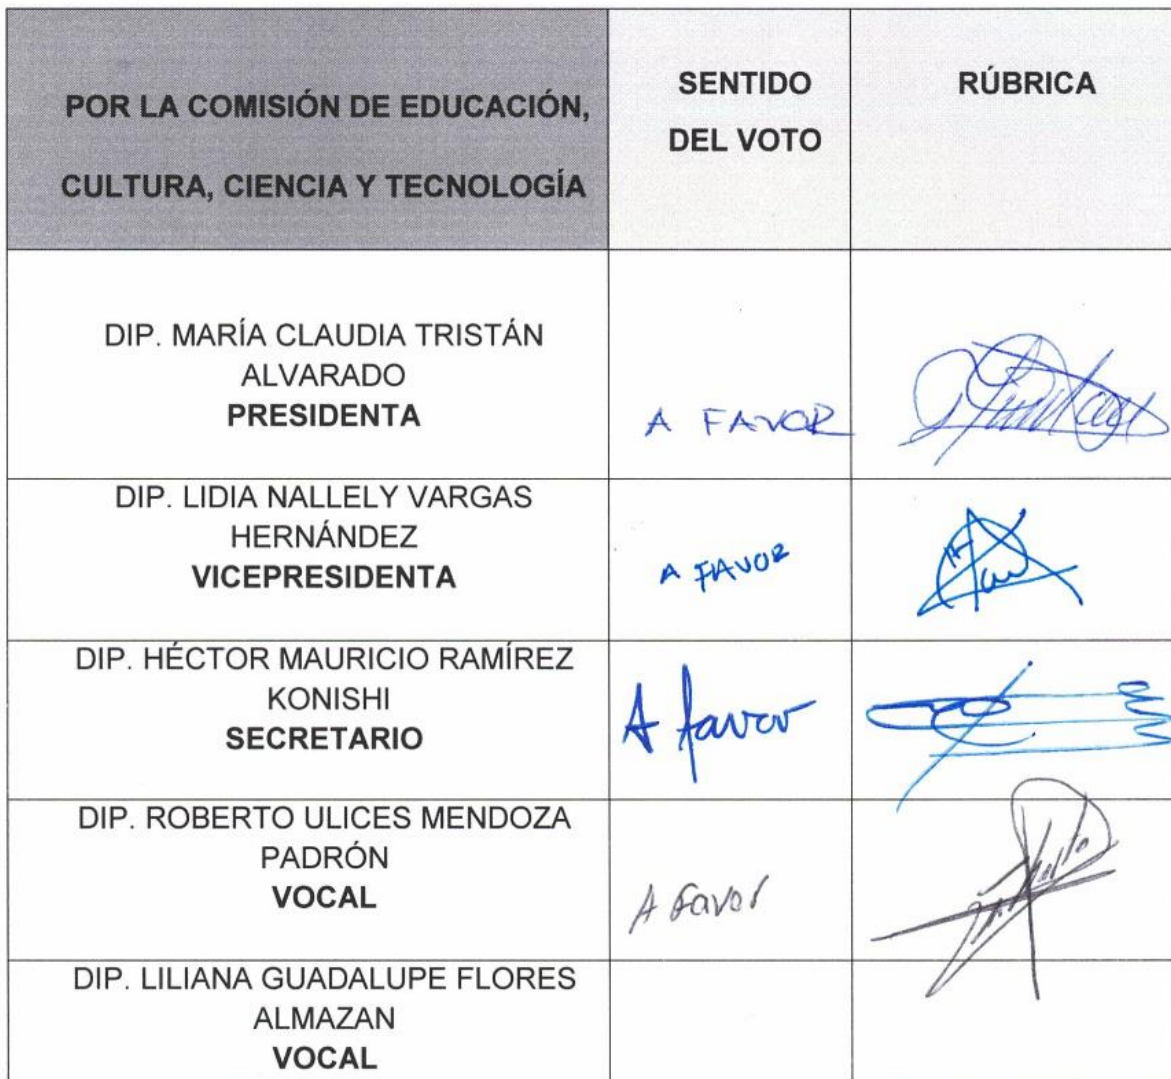 POR LA COMISIÓN DE EDUCACIÓN,
CULTURA, CIENCIA Y TECNOLOGÍA
SENTIDO
DEL VOTO
RÚBRICA
DIP. MARÍA CLAUDIA TRISTÁN
ALVARADO
PRESIDENTA
A FAVOR
DIP. LIDIA NALLELY VARGAS
HERNÁNDEZ
VICEPRESIDENTA
A FAVOR
DIP. HÉCTOR MAURICIO RAMÍREZ
KONISHI
SECRETARIO
A favor
DIP. ROBERTO ULICES MENDOZA
PADRÓN
VOCAL
A Favor
DIP. LILIANA GUADALUPE FLORES
ALMAZAN
VOCAL